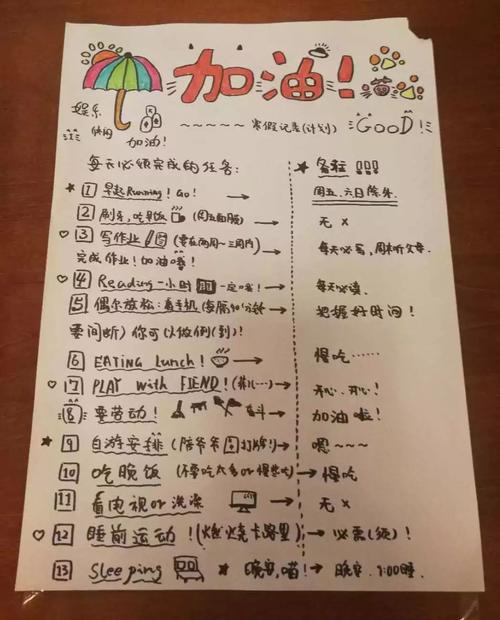 加油!
娱乐
快闪
加油!
~~~~~ 寒假记表(计划)
GOOD!
每天必须完成的任务:
备注 !!!
★ 1 早起Running! Go! →
周五、六日除外.
2 刷牙,吃早饭 →
无 ×
♡ 3 写作业 (要在两周~三周内) →
完成作业!加油哦!
每天必写,周末听父母.
♡ 4 Reading 一小时 一定哦! →
每天必读.
5 偶尔放松:看手机 →
要间断)你可以做例(到)!
把握好时间!
6 EATING Lunch! →
慢吃……
♡ 7 PLAY with FIEND! →
开心,开心!
8 要劳动! 奋斗 →
加油啦!
★ 9 自游安排 (陪爷爷打牌!) →
嗯~~~
10 吃晚饭 (不要吃太多or慢些吃) →
慢吃
11 看电视or洗澡 →
无 ×
♡ 12 睡前运动!(燃烧卡路里) →
必需(须)!
13 Sleeping ★ 晚安,喵! →
晚安.